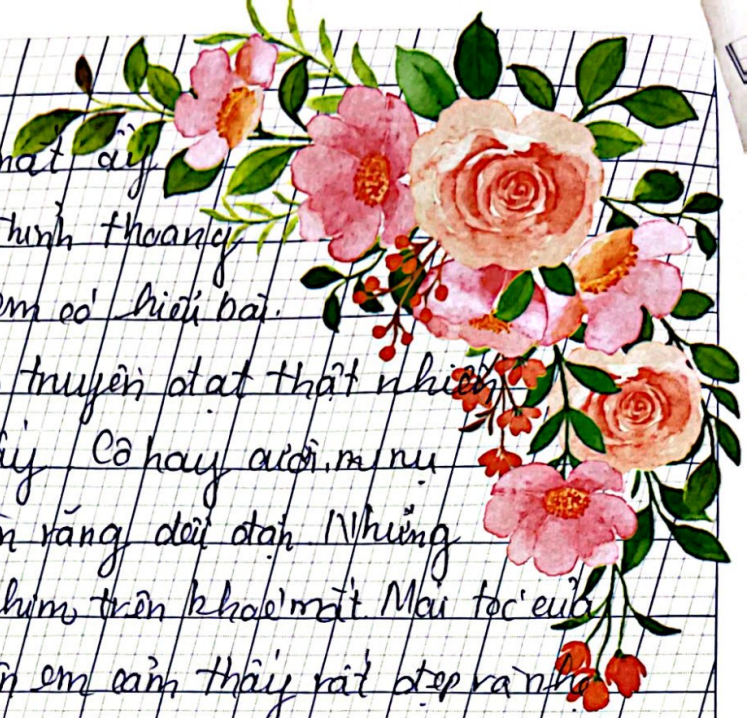 mắt ấy
thỉnh thoang
em có hiểu bài.
truyền đạt thật nhiều
ấy Cô hay cười, nụ
răng đều đặn Những
chim trên khoé mắt Mái tóc của
em cảm thấy rất đẹp và nhẹ